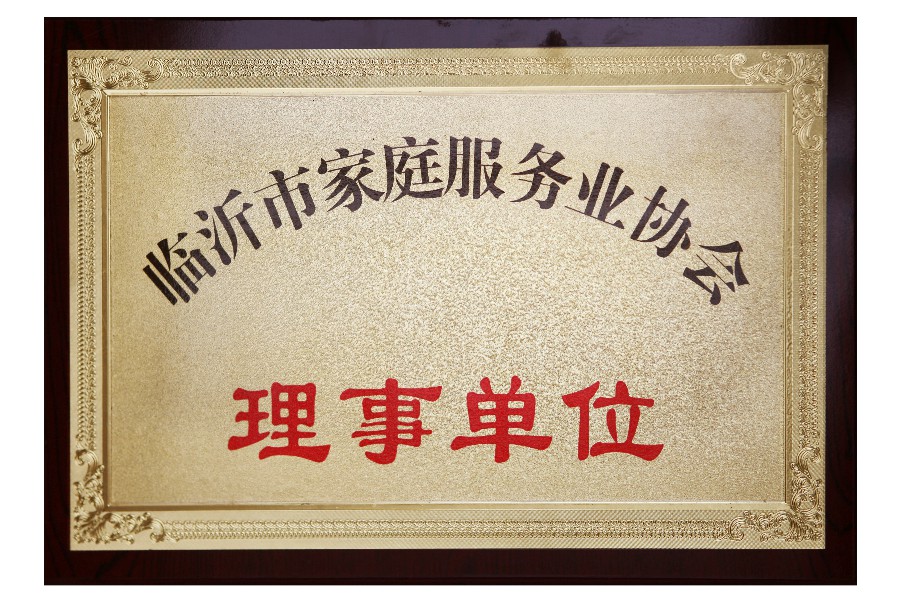 临沂市家庭服务业协会
理事单位